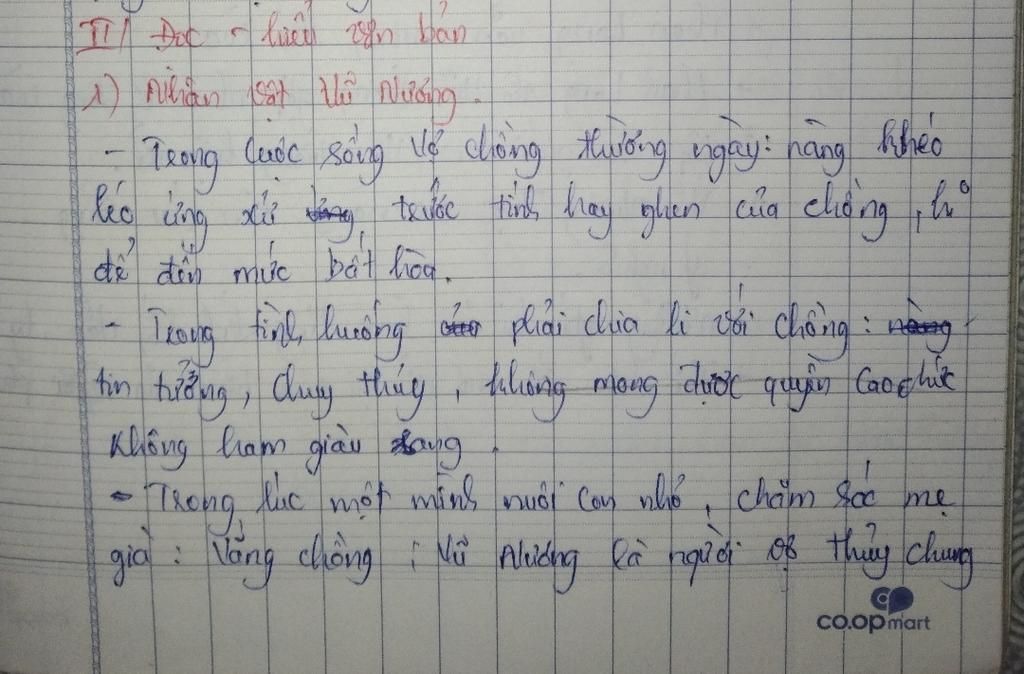 II/ Đọc - hiểu văn bản
1) Nhân vật Vũ Nương.
- Trong cuộc sống vợ chồng thường ngày: nàng khéo
léo ứng xử trước tính hay ghen của chồng, k°
để đến mức bất hòa.
- Trong tình huống phải chia li với chồng:
tin tưởng, thủy, không mong được quyền cao chức
không ham giàu sang.
- Trong lúc một mình nuôi con nhỏ, chăm sóc mẹ
già: Vắng chồng, Vũ Nương là người thủy chung
co.opmart